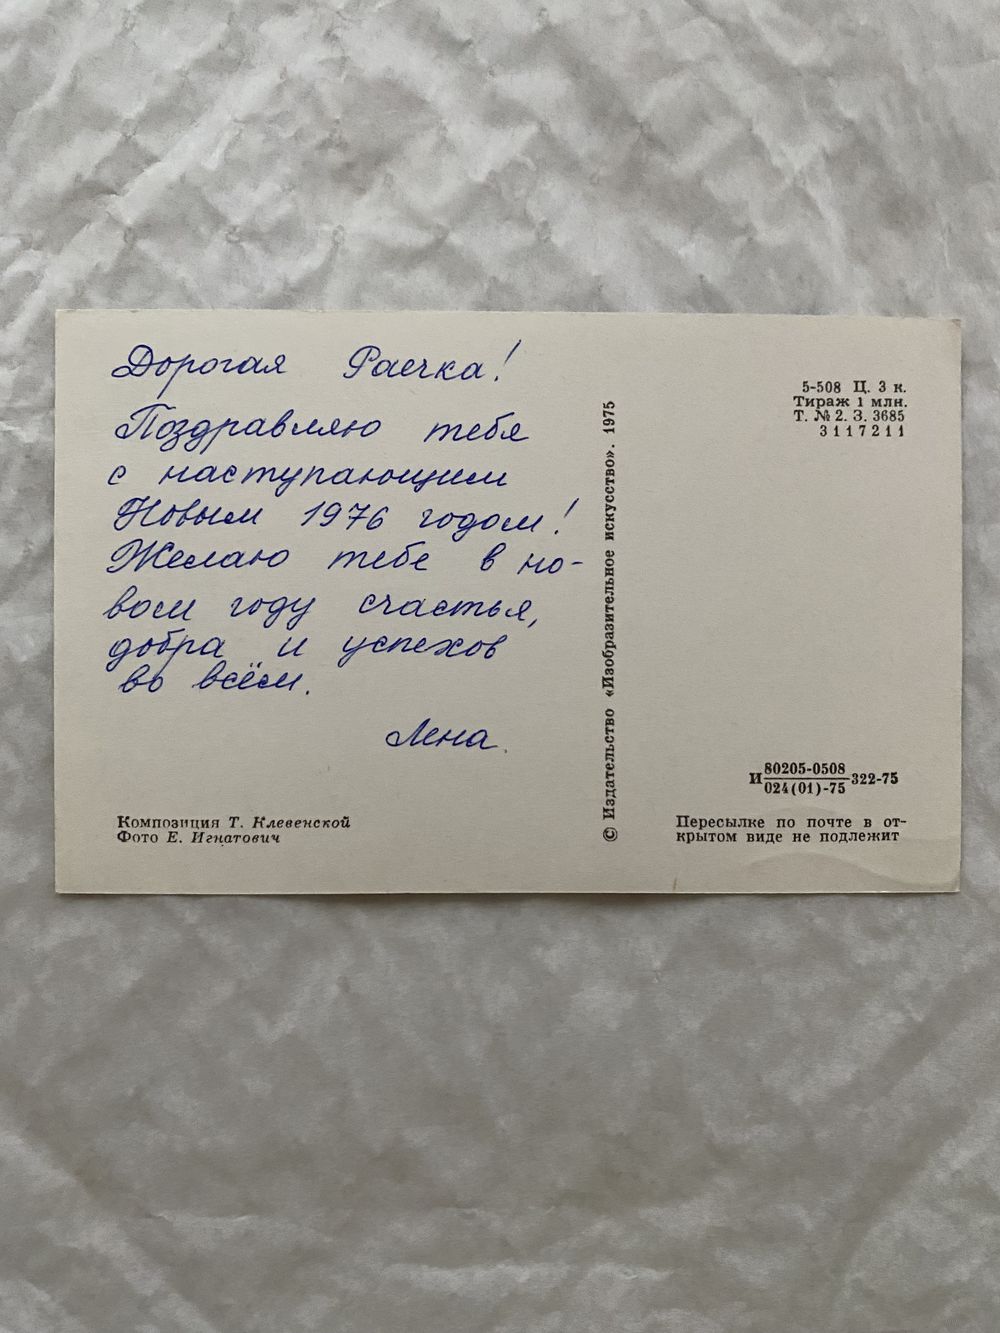 Дорогая Раечка!
Поздравляю тебя
с наступающим
Новым 1976 годом!
Желаю тебе в но-
вом году счастья,
добра и успехов
во всём.
Лена.
Композиция Т. Клевенской
Фото Е. Игнатович
© Издательство «Изобразительное искусство». 1975
5-508 Ц. 3 к.
Тираж 1 млн.
Т. № 2. З. 3685
3117211
И 80205-0508
024(01)-75 322-75
Пересылке по почте в от-
крытом виде не подлежит